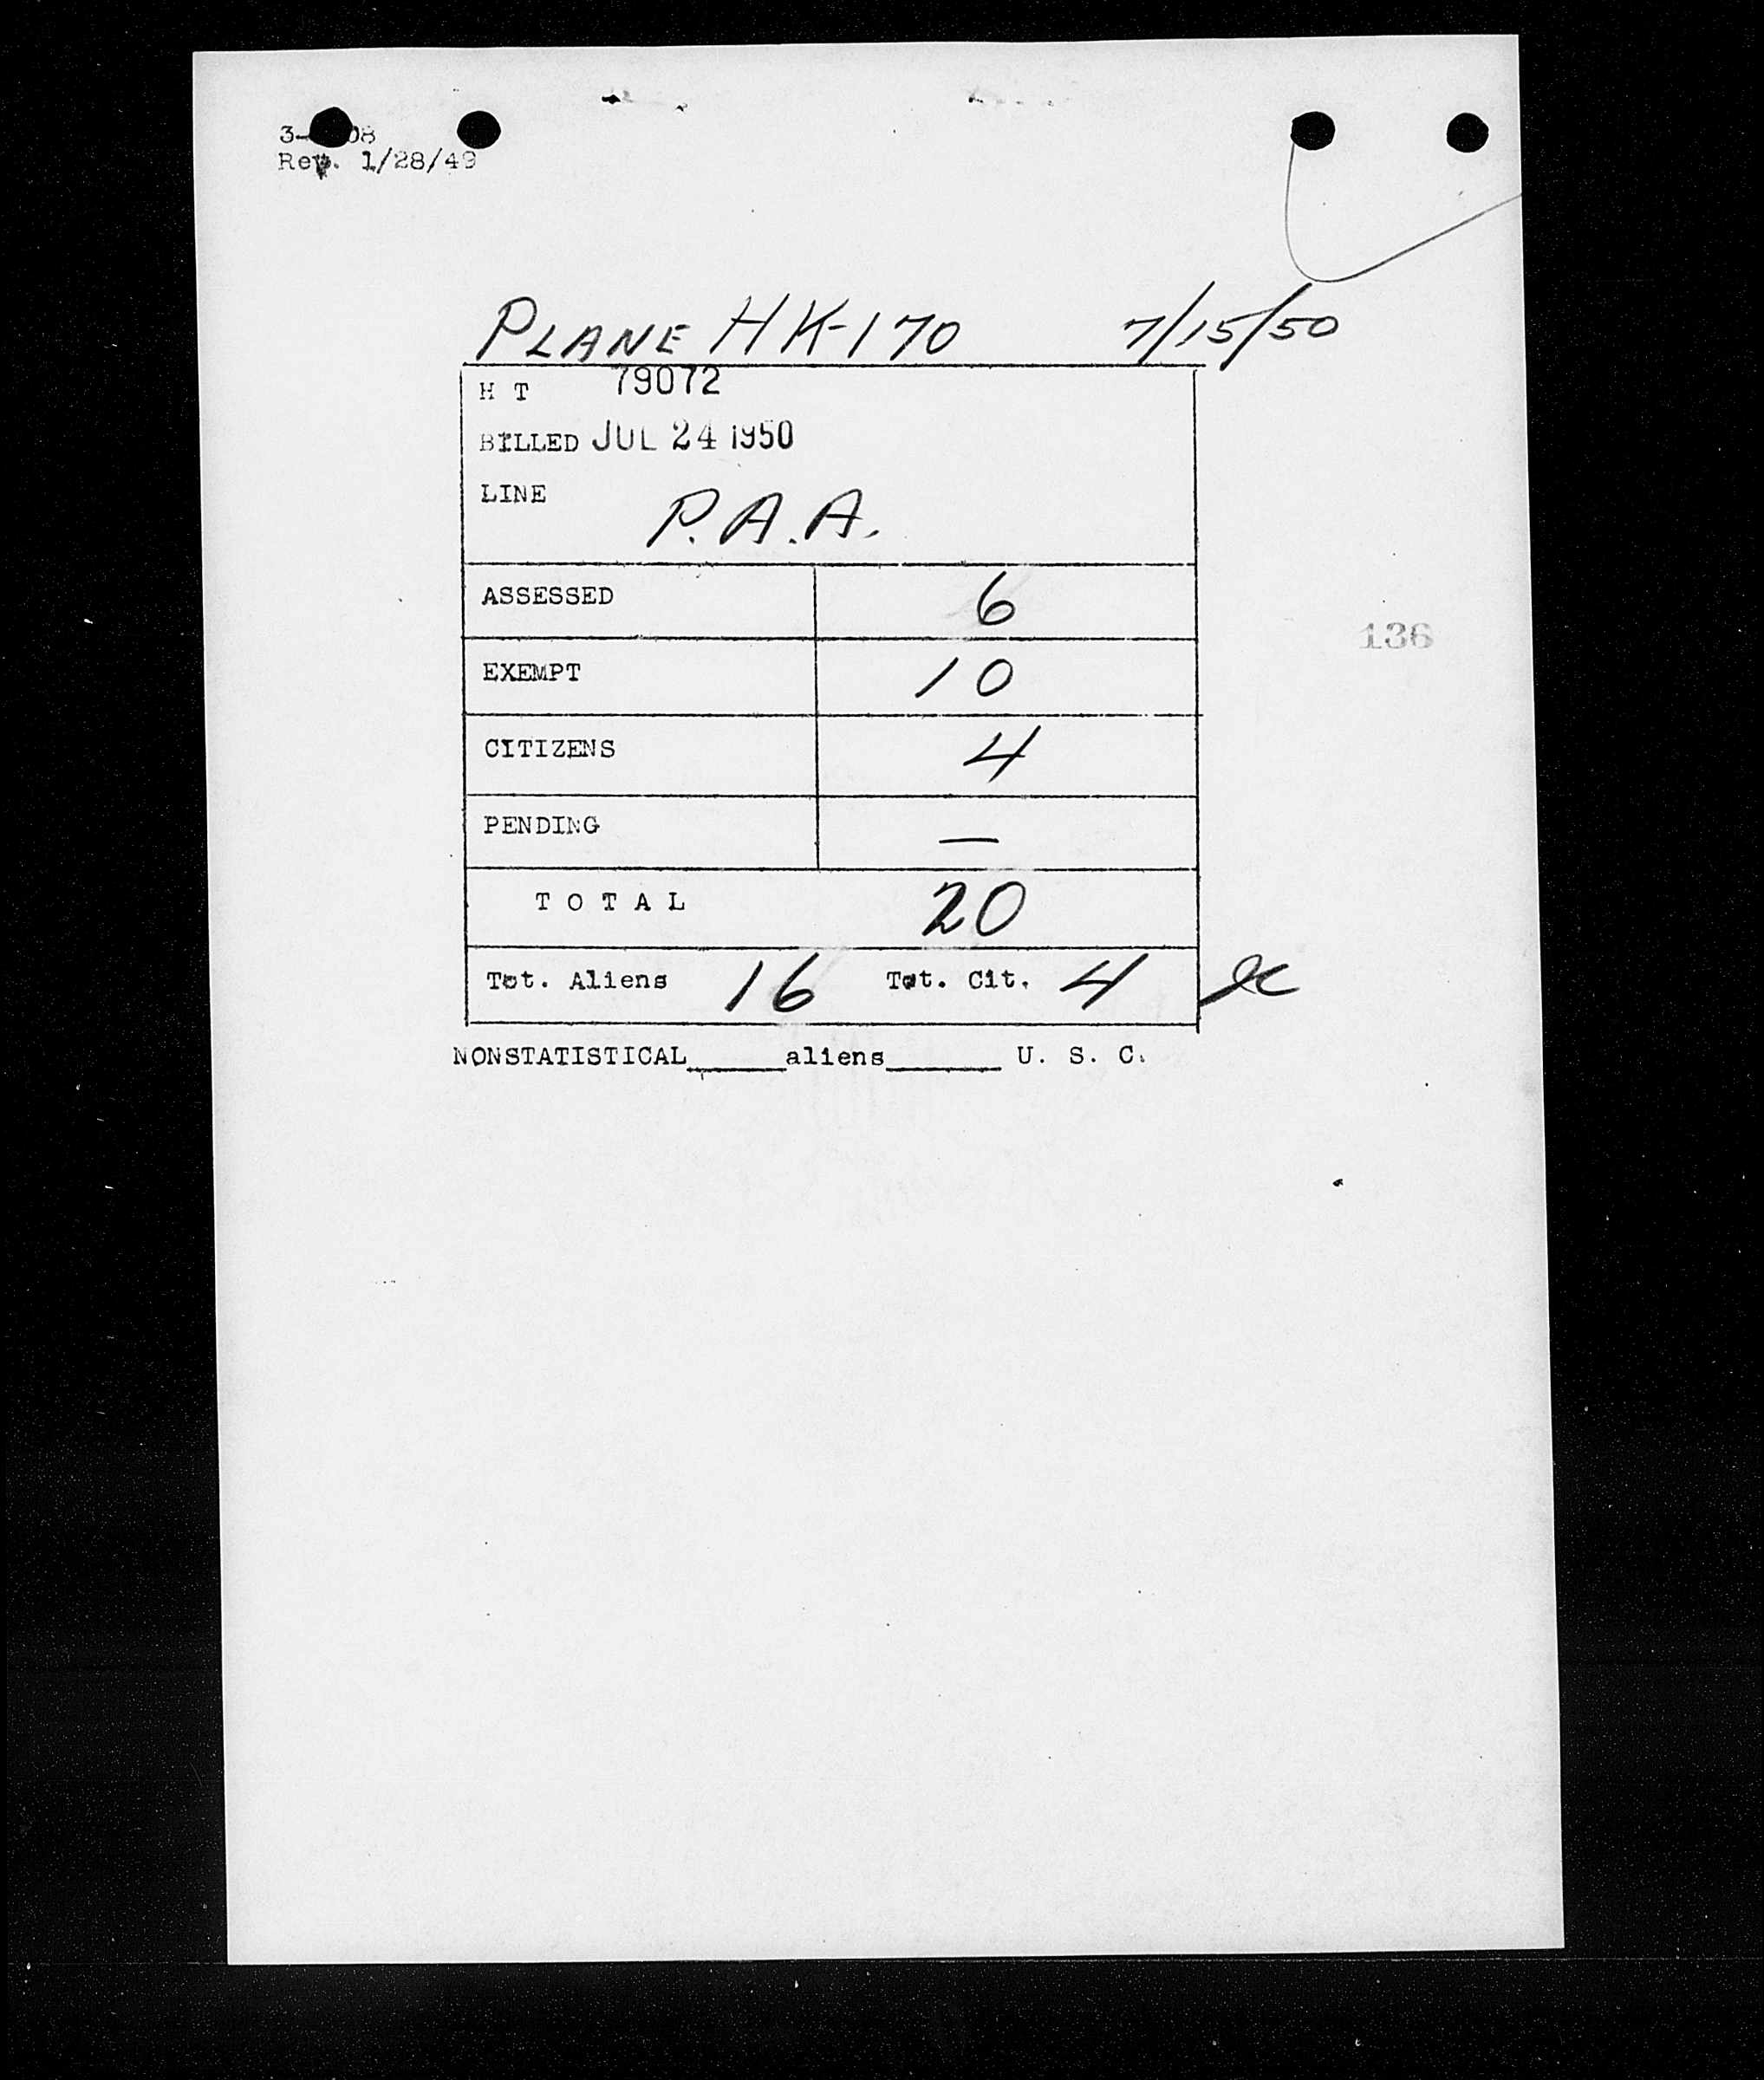 Rev. 1/28/49
PLANE HK-170 7/15/50
H T 79072
BILLED JUL 24 1950
LINE P.A.A.
ASSESSED 6
136
EXEMPT 10
CITIZENS 4
PENDING —
T O T A L 20
Tot. Aliens 16 Tot. Cit. 4
NONSTATISTICAL______aliens_______ U. S. C.